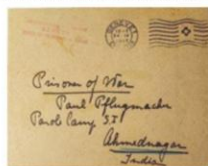 GENEVE
Prisoner of War
Paul Pflugmacher
Parole Camp
Ahmednagar
India